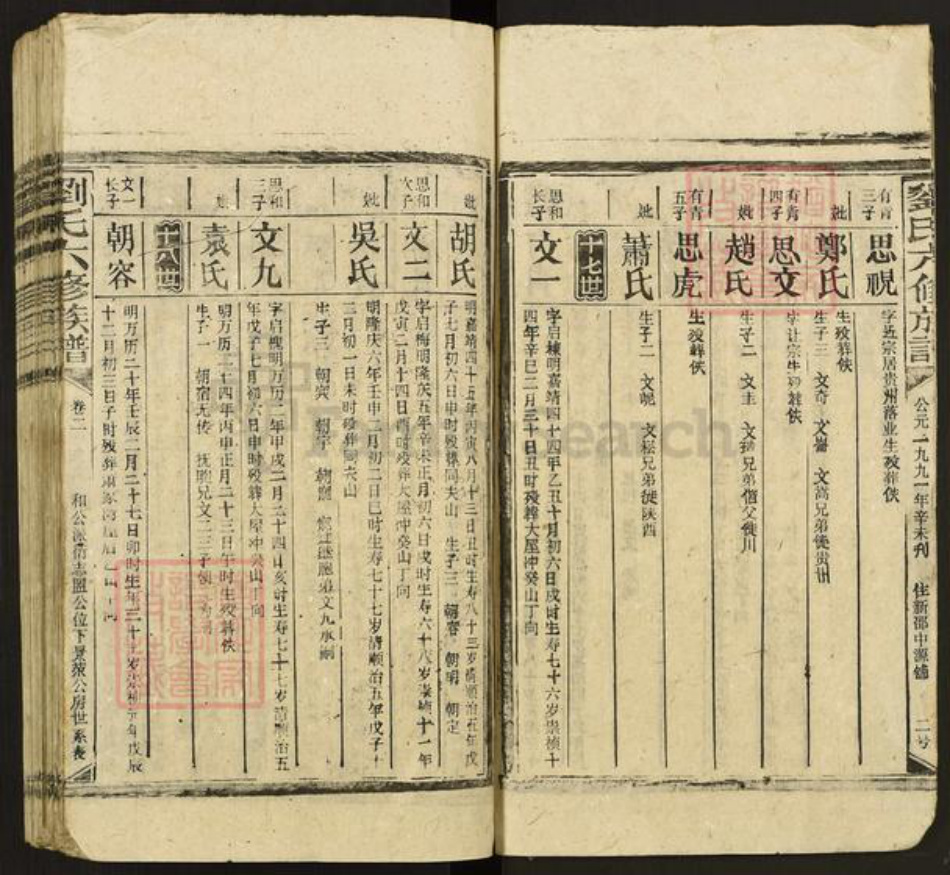 劉氏六修族譜
公元一九九一年辛未刊 住新邵中源铺 二号
有青三子 思視 字近宗居贵州落业生殁葬佚
妣 鄭氏 生殁葬佚
生子三 文奇 文 文嵩兄弟徙贵州
有青四子 思文 字让宗生殁葬佚
妣 趙氏 生子二 文圭 文 兄弟偕父徙川
有青五子 思虎 生殁葬佚
妣 蕭氏 生子二 文昵 文崧兄弟徙陕西
十七世
思和长子 文一 字启棟明嘉靖四十四年乙丑十月初六日戌时生寿七十六岁崇祯十
四年辛巳二月三十日丑时殁葬大屋冲癸山丁向
妣 胡氏 明嘉靖四十五年丙寅八月十三日丑时生寿八十三岁清顺治五年戊
子七月初六日申时殁葬同夫山 生子三 朝容 朝明 朝定
思和次子 文二 字启梅明隆庆五年辛未正月初六日戌时生寿六十八岁崇祯十一年
戊寅二月十四日酉时殁葬大屋冲癸山丁向
妣 吳氏 明隆庆六年壬申二月初二日巳时生寿七十七岁清顺治五年戊子十
二月初一日未时殁葬同夫山
生子三 朝宾 朝宇 朝 弟文九承嗣
思和三子 文九 字启槐明万历二年甲戌二月二十四日亥时生寿七十七岁清顺治五
年戊子七月初六日申时殁葬大屋冲癸山丁向
妣 袁氏 明万历二十四年丙申正月二十三日午时生殁葬佚
生子一 朝宿无传 抚胞兄文二三子
十八世
文一长子 朝容 明万历二十年壬辰二月二十七日卯时生年三十 岁崇祯元年戊辰
十二月初三日子时殁葬
劉氏六修族譜
卷二 和公派 志盟公位下景荣公房世系表